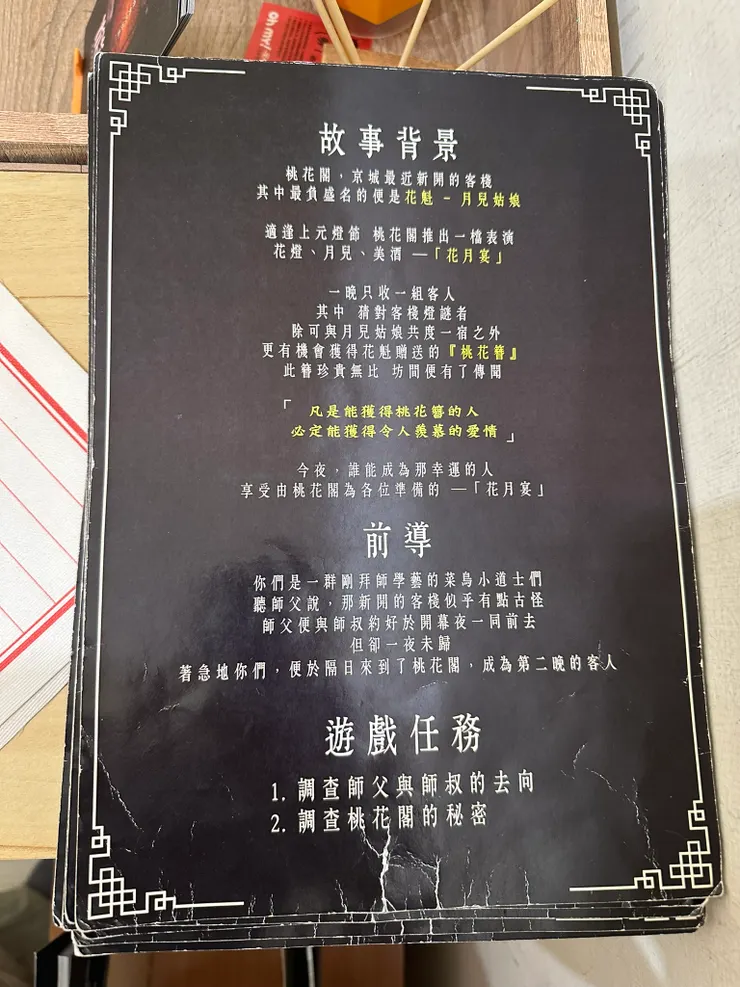 oh my!
故事背景
桃花閣，京城最近新開的客棧
其中最負盛名的便是花魁 - 月兒姑娘
適逢上元燈節 桃花閣推出一檔表演
花燈、月兒、美酒 —「花月宴」
一晚只收一組客人
其中 猜對客棧燈謎者
除可與月兒姑娘共度一宿之外
更有機會獲得花魁贈送的『桃花簪』
此簪珍貴無比 坊間便有了傳聞
「 凡是能獲得桃花簪的人
必定能獲得令人羨慕的愛情 」
今夜，誰能成為那幸運的人
享受由桃花閣為各位準備的 —「花月宴」
前導
你們是一群剛拜師學藝的菜鳥小道士們
聽師父說，那新開的客棧似乎有點古怪
師父便與師叔約好於開幕夜一同前去
但卻一夜未歸
著急地你們，便於隔日來到了桃花閣，成為第二晚的客人
遊戲任務
1. 調查師父與師叔的去向
2. 調查桃花閣的秘密